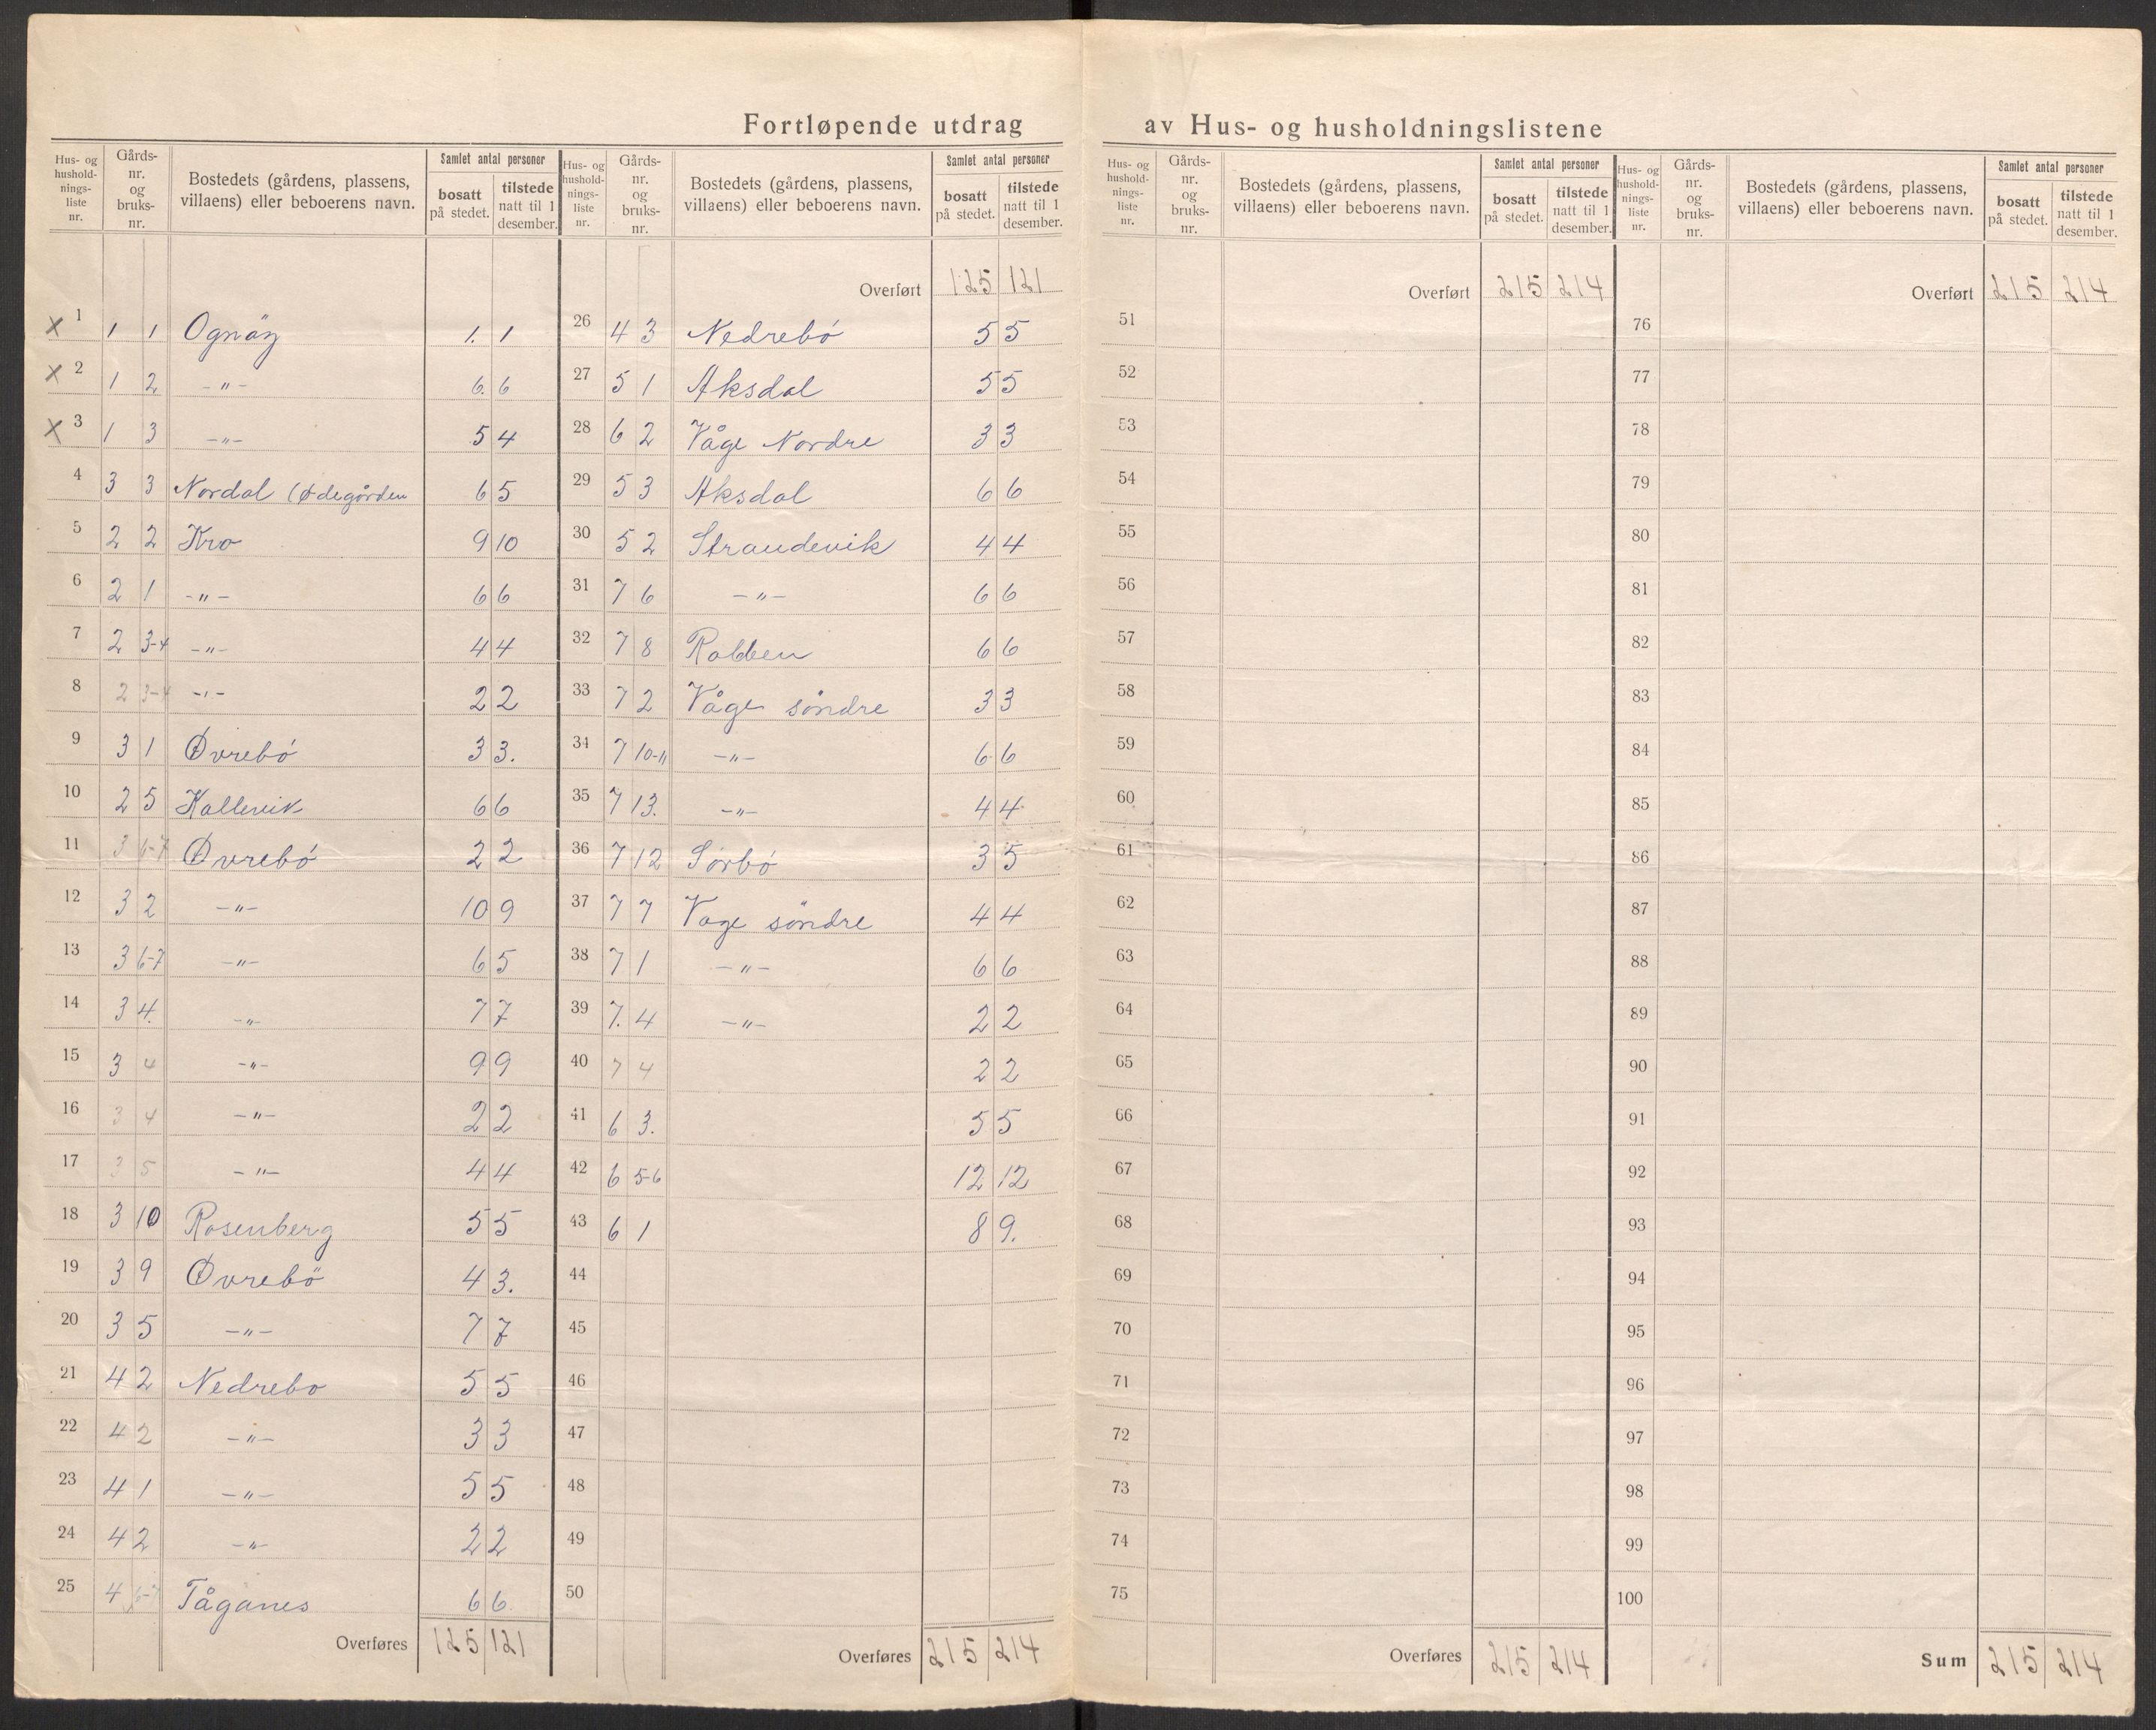 Fortløpende utdrag av Hus- og husholdningslistene
Hus- og husholdningsliste nr. Gårds-nr. og bruks-nr. Bostedets (gårdens, plassens, villaens) eller beboerens navn. Samlet antal personer bosatt på stedet. tilstede natt til 1 desember.
1 1 1 Ognöy 1. 1
X 2 1 2 -"- 6. 6
X 3 1 3 -"- 5 4
4 3 3 Nordal (Ødegården 6 5
5 2 2 Kro 9 10
6 2 1 -"- 6 6
7 2 3-4 -"- 4 4
8 2 3-4 -"- 2 2
9 3 1 Øvrebó 3 3.
10 2 5 Kallevik 6 6
11 3 6-7 Øvrebó 2 2
12 3 2 -"- 10 9
13 3 6-7 -"- 6 5
14 3 4. -"- 7 7
15 3 4 -"- 9 9
16 3 4 -"- 2 2
17 3 5 -"- 4 4
18 3 10 Rosenberg 5 5
19 3 9 Øvrebö 4 3.
20 3 5 -"- 7 7
21 4 2 Nedrebo 5 5
22 4 2 -"- 3 3
23 4 1 -"- 5 5
24 4 2 -"- 2 2
25 4 6-7 Tåganes 6 6
Overføres 125 121
Hus- og husholdningsliste nr. Gårds-nr. og bruks-nr. Bostedets (gårdens, plassens, villaens) eller beboerens navn. Samlet antal personer bosatt på stedet. tilstede natt til 1 desember.
Overført 125 121
26 4 3 Nedrebó 5 5
27 5 1 Aksdal 5 5
28 6 2 Våge Nordre 3 3
29 5 3 Aksdal 6 6
30 5 2 Strandevik 4 4
31 7 6 -"- 6 6
32 7 8 Robben 6 6
33 7 2 Våge söndre 3 3
34 7 10-11 -"- 6 6
35 7 13. -"- 4 4
36 7 12 Sörbó 3 5
37 7 7 Vage söndre 4 4
38 7 1 -"- 6 6
39 7. 4 -"- 2 2
40 7 4 2 2
41 6 3. 5 5
42 6 5-6 12 12
43 6 1 8 9.
44
45
46
47
48
49
50
Overføres 215 214
Hus- og husholdningsliste nr. Gårds-nr. og bruks-nr. Bostedets (gårdens, plassens, villaens) eller beboerens navn. Samlet antal personer bosatt på stedet. tilstede natt til 1 desember.
Overført 215 214
51
52
53
54
55
56
57
58
59
60
61
62
63
64
65
66
67
68
69
70
71
72
73
74
75
Overføres 215 214
Hus- og husholdningsliste nr. Gårds-nr. og bruks-nr. Bostedets (gårdens, plassens, villaens) eller beboerens navn. Samlet antal personer bosatt på stedet. tilstede natt til 1 desember.
Overført 215 214
76
77
78
79
80
81
82
83
84
85
86
87
88
89
90
91
92
93
94
95
96
97
98
99
100
Sum 215 214